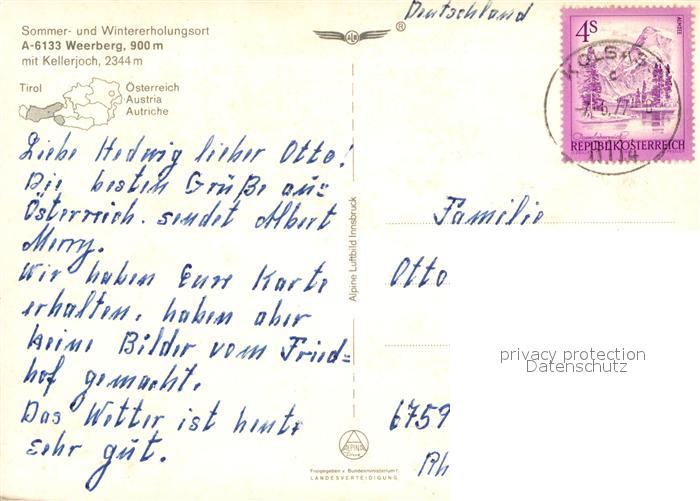 Sommer- und Wintererholungsort
A-6133 Weerberg, 900 m
mit Kellerjoch, 2344 m
Tirol
Österreich
Austria
Autriche
Liebe Hedwig lieber Otto!
Die besten Grüße aus=
Österreich. sendet Albert
Merry.
Wir haben Eure Karte
erhalten, haben aber
keine Bilder vom Fried=
hof gemacht.
Das Wetter ist heute
sehr gut.
Alpine Luftbild Innsbruck
ALPINE
Freigegeben v. Bundesministerium f.
LANDESVERTEIDIGUNG
®
Deutschland
4S
ALMSEE
REPUBLIK ÖSTERREICH
KOLSASS
Familie
Otto
6759
Rh
privacy protection
Datenschutz